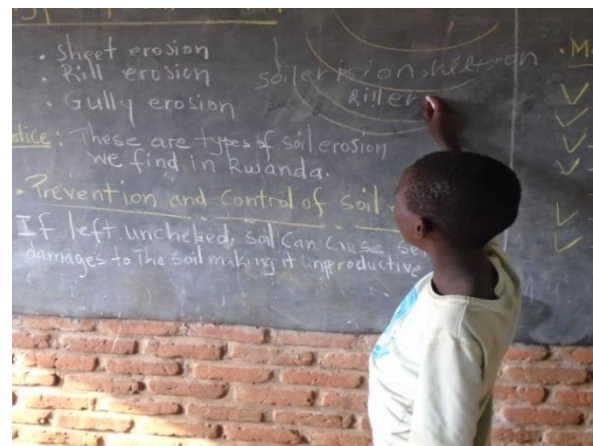 • Sheet erosion
• Rill erosion
• Gully erosion
soil erision
Riller
: These are types of soil erosion
we find in Rwanda.
• Prevention and control of soil
If left uncheked, soil can cause
damages to The soil making it unproductive
M